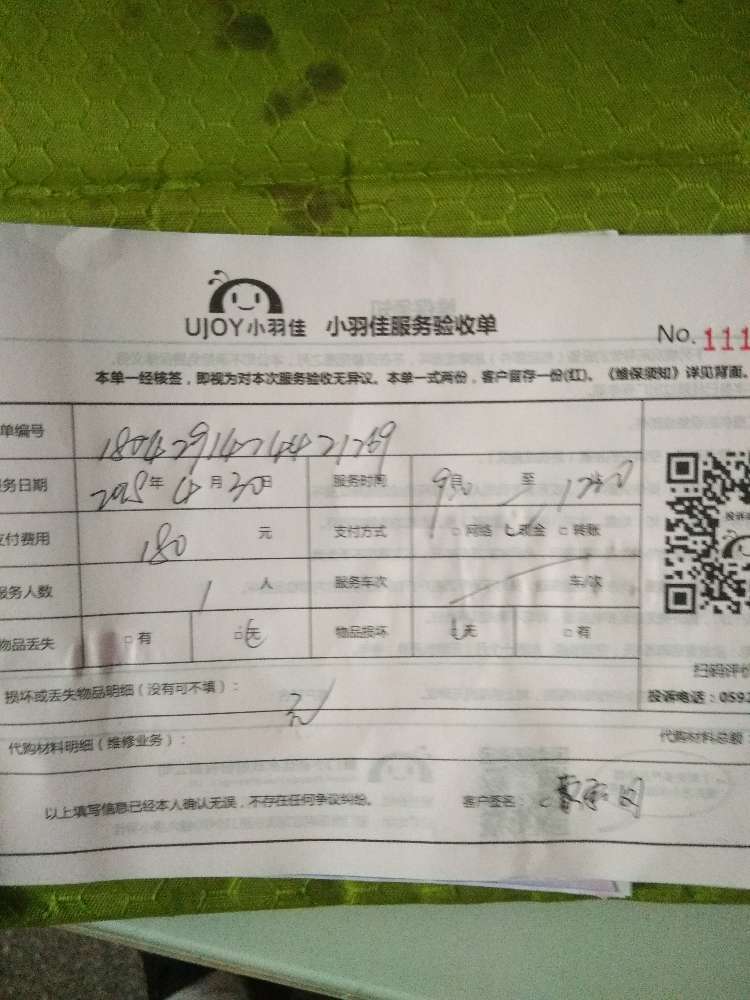 UJOY小羽佳 小羽佳服务验收单
No. 111
本单一经核签，即视为对本次服务验收无异议。本单一式两份，客户留存一份(红)。《维保须知》详见背面。
单编号 1804291474421269
服务日期 2018年4月30日 服务时间 至
支付费用 180 元 支付方式 □网络 现金 □转账
服务人数 1 人 服务车次 车/次
物品丢失 □有 □无 物品损坏 无 □有
扫码评价
损坏或丢失物品明细（没有可不填）：
投诉电话：0592
代购材料明细（维修业务）：
代购材料总数：
以上填写信息已经本人确认无误，不存在任何争议纠纷。 客户签名：